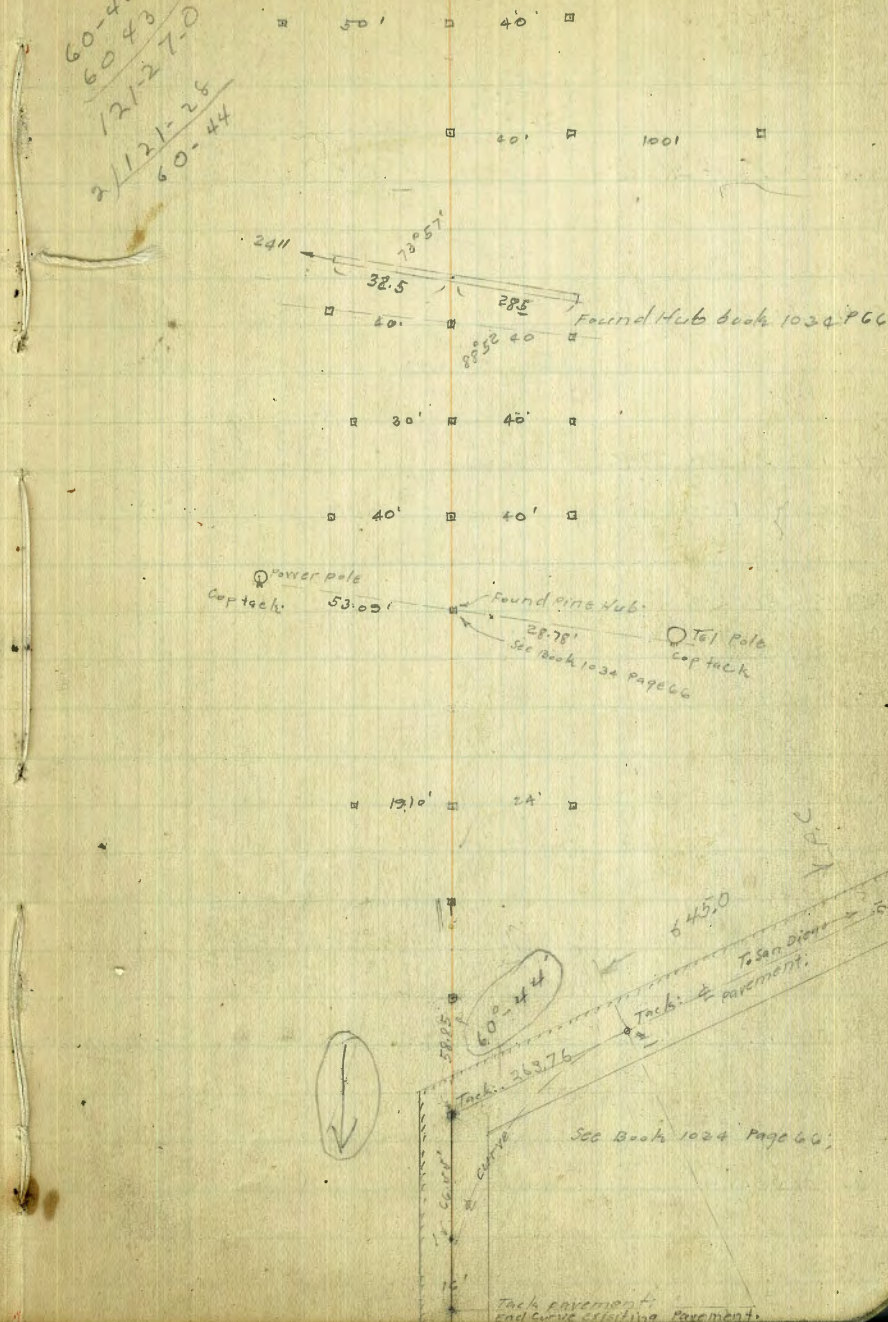 60-43
121-27-0
2/121-28
60-44
50' 40'
40' 100'
24"
73°57'
38.5 28.5
Found Hub book 1034 P66
40. 40
88°52
30' 40'
40' 40'
Power pole
Cop tack. 53.09' Found pine Hub.
28.78' Tel Pole
Cop tack
See Book 1034 Page 66
19.10' 24'
645.0
To San Diego
Tack: ℄ pavement.
60°-44'
58.85'
Tack. 263.76
See Book 1034 Page 66.
curve
16'
Tack pavement.
End Curve existing Pavement.